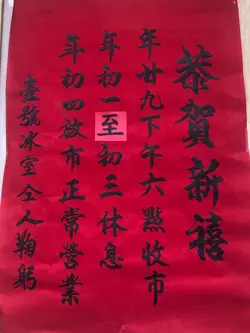 恭賀新禧
年廿九下午六點收市
年初一至初三休息
年初四啟市正常營業
壹號冰室仝人鞠躬